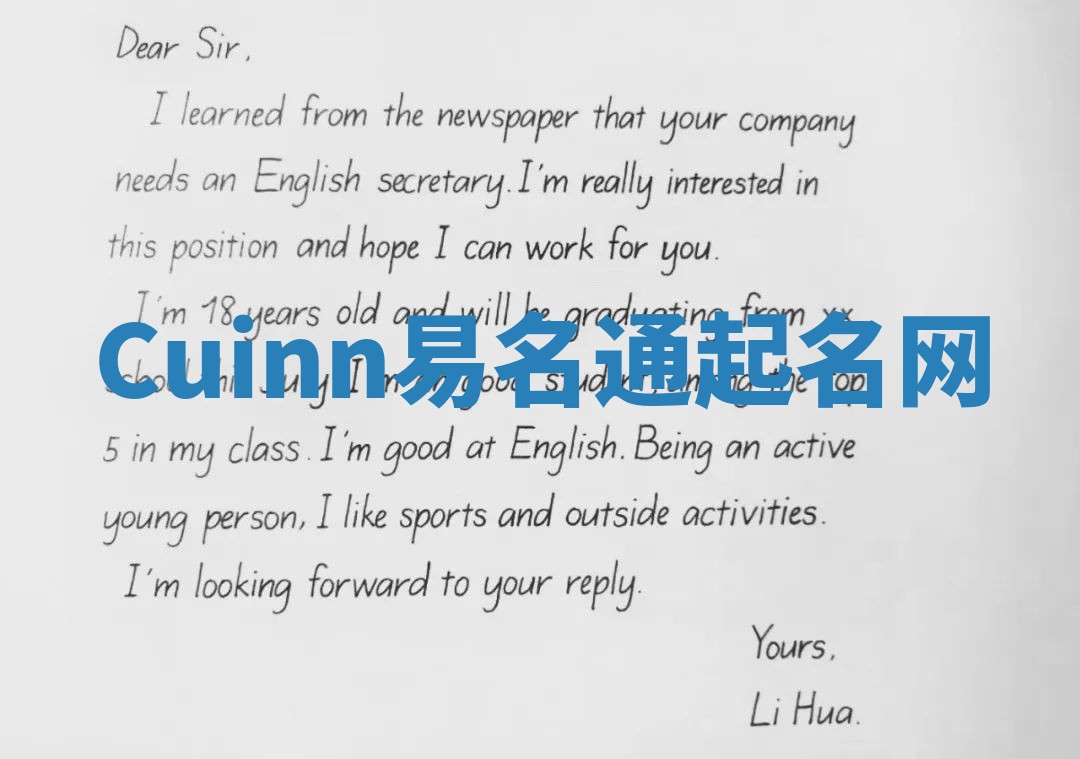 Dear Sir,
I learned from the newspaper that your company
needs an English secretary. I'm really interested in
this position and hope I can work for you.
I'm 18 years old and will be graduating from xx
Cuinn易名通起名网
school this July. I'm a good student, among the top
5 in my class. I'm good at English. Being an active
young person, I like sports and outside activities.
I'm looking forward to your reply.
Yours,
Li Hua.